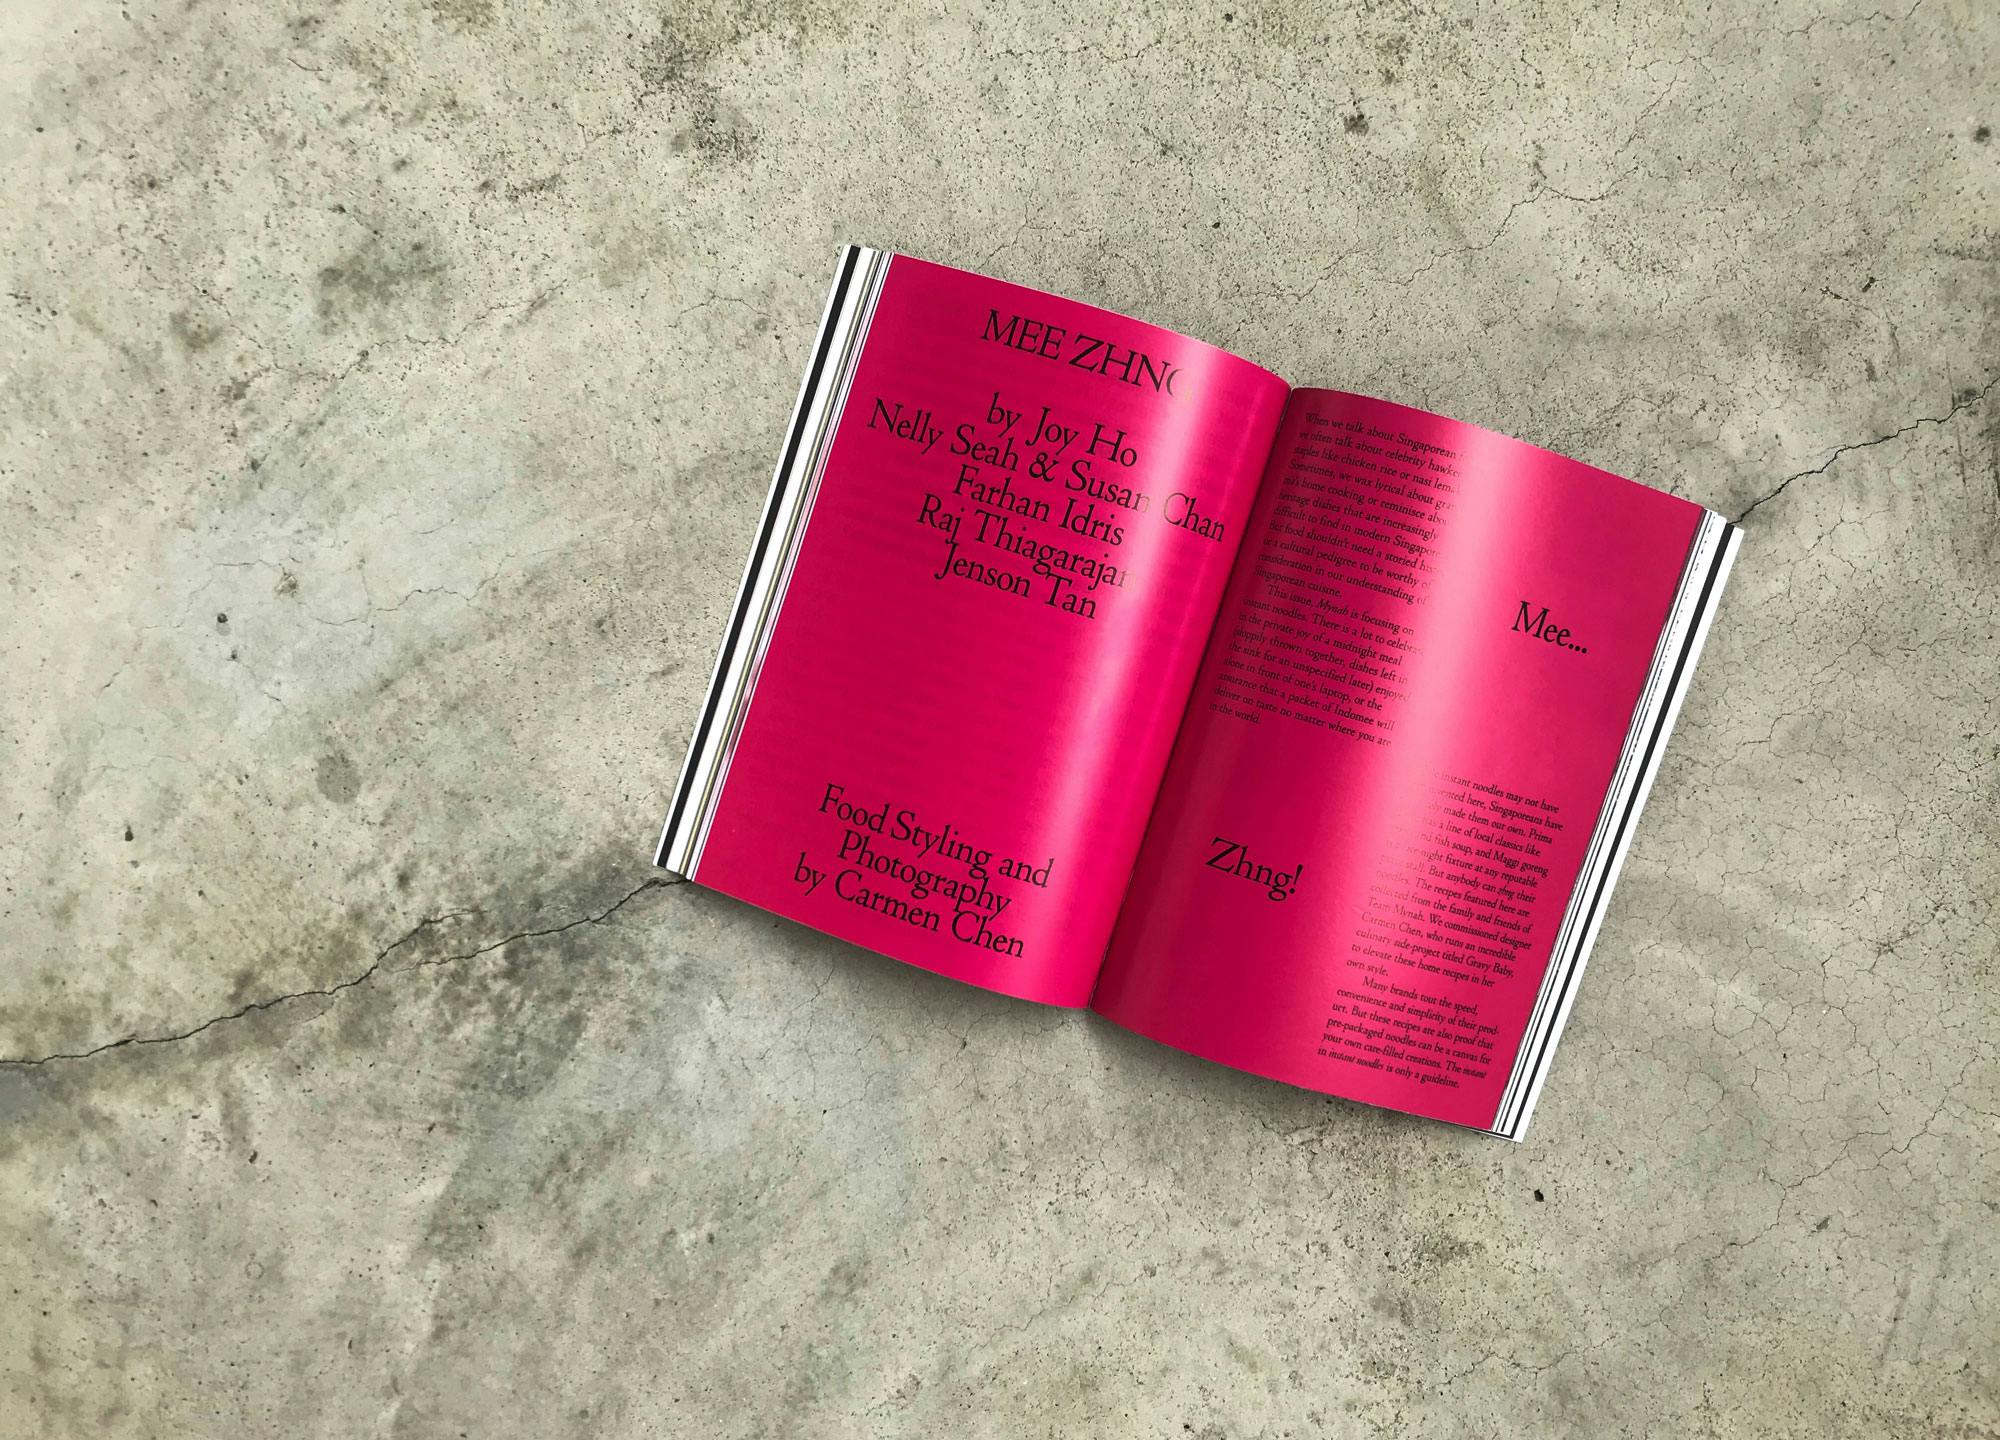 MEE ZHNG
by Joy Ho
Nelly Seah & Susan Chan
Farhan Idris
Raj Thiagarajan
Jenson Tan
Food Styling and
Photography
by Carmen Chen
When we talk about Singaporean
we often talk about celebrity
staples like chicken rice or nasi
Sometimes, we wax lyrical about
ma's home cooking or reminisce
heritage dishes that are increasingly
difficult to find in modern
But food shouldn't need a storied
or a cultural pedigree to be worthy of
consideration in our understanding of
Singaporean cuisine.
This issue, Mynah is focusing on
instant noodles. There is a lot to
in the private joy of a midnight meal
(sloppily thrown together, dishes left in
the sink for an unspecified later) enjoyed
alone in front of one's laptop, or the
assurance that a packet of Indomee will
deliver on taste no matter where you are
in the world.
Mee...
Zhng!
instant noodles may not have
here, Singaporeans have
made them our own. Prima
has a line of local classics like
and fish soup, and Maggi goreng
fixture at any reputable
stall. But anybody can zhng their
noodles. The recipes featured here are
collected from the family and friends of
Team Mynah. We commissioned designer
Carmen Chen, who runs an incredible
culinary side-project titled Gravy Baby,
to elevate these home recipes in her
own style.
Many brands tout the speed,
convenience and simplicity of their prod-
uct. But these recipes are also proof that
pre-packaged noodles can be a canvas for
your own care-filled creations. The instant
in instant noodles is only a guideline.